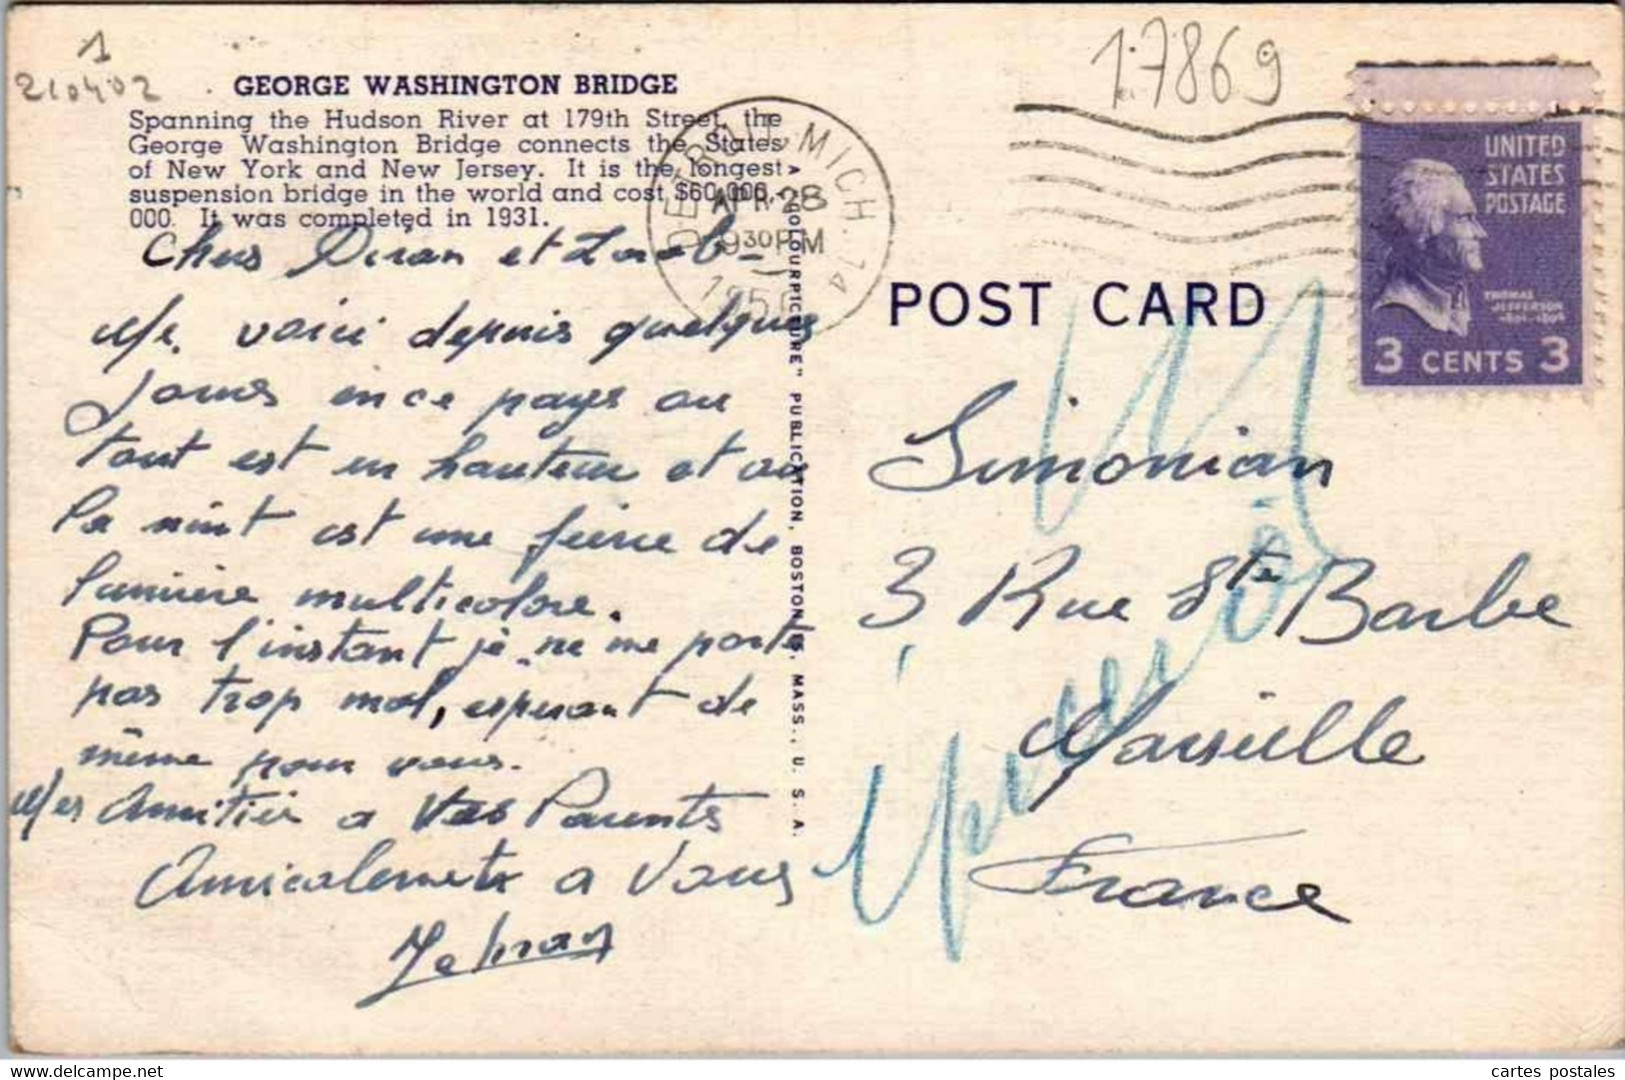 1
210402
17869
GEORGE WASHINGTON BRIDGE
Spanning the Hudson River at 179th Street, the
George Washington Bridge connects the States
of New York and New Jersey. It is the longest
suspension bridge in the world and cost $60,000,-
000. It was completed in 1931.
DETROIT, MICH. 14
APR 28
930 PM
195
UNITED
STATES
POSTAGE
THOMAS
JEFFERSON
3 CENTS 3
POST CARD
"COLOURPICTURE" PUBLICATION, BOSTON 15, MASS., U. S. A.
Chers Diran et
Me voici depuis quelques
jours en ce pays ou
tout est en hauteur et ou
la nuit est une féerie de
lumière multicolore.
Pour l'instant je ne me porte
pas trop mal, esperant de
même pour vous.
Mes Amitiés a Vos Parents
Amicalement a Vous
Simonian
3 Rue Ste Barbe
Marseille
France
cartes postales